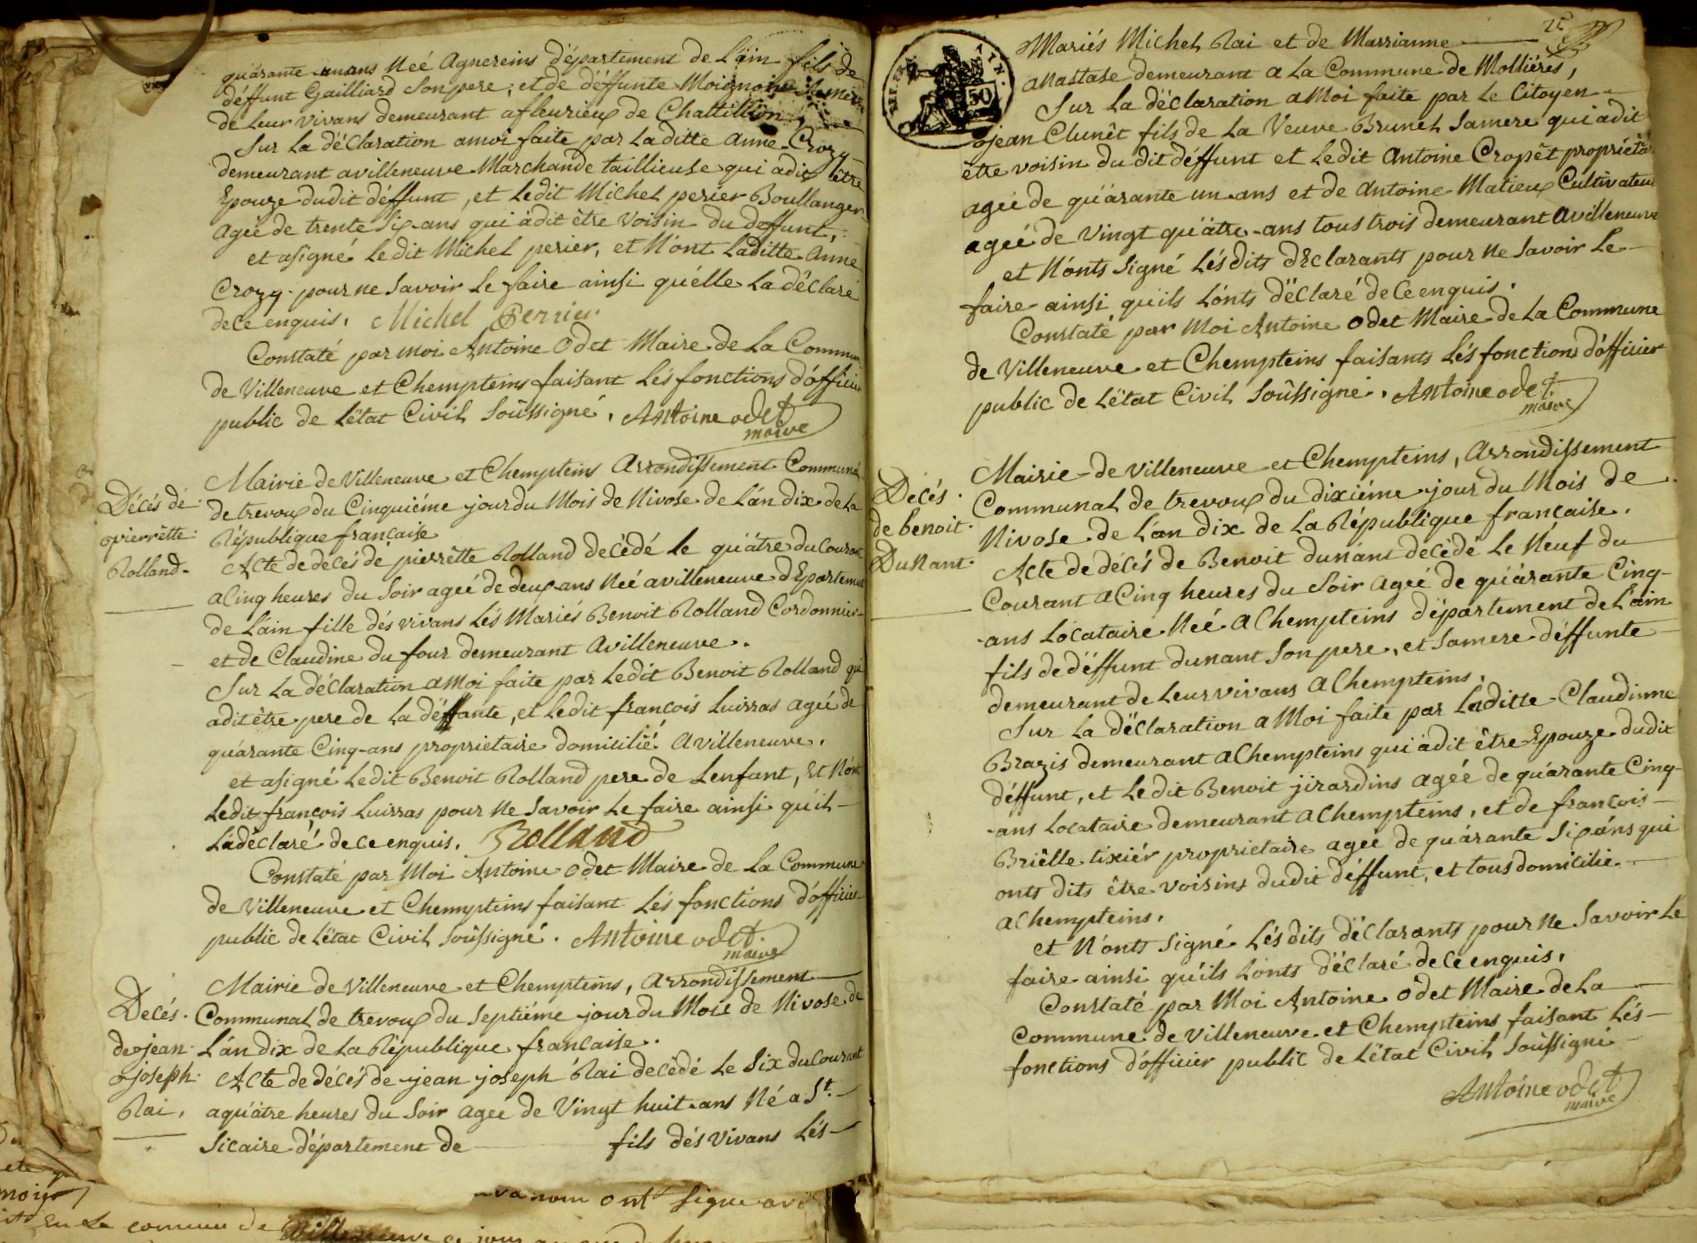 quárante un ans Née Agnereins département de L'ain fils de
déffunt Gailliard Son pere, et de déffunte
de Leur vivans demeurant a fleurieux de Chattillion
Sur La déClaration a moi faite par La ditte Anne Crozy
demeurant a villeneuve Marchande taillieuse qui a dit être
Epouze du dit déffunt, et Le dit Michel perier Boullanger
Ageé de trente Six ans qui a dit être Voisin du deffunt,
et a signé Le dit Michel perier, et N'ont La ditte Anne
Crozy pour ne Savoir Le faire ainsi qu'elle La déClaré
de Ce enquis. Michel Perrier
Constaté par moi Antoine Odet Maire de La Commune
de Villeneuve et Chempteins faisant Lés fonctions d'officier
public de L'état Civil Soûssigné. Antoine odet
maire
Mairie de Villeneuve et Chempteins Arrondissement Communal
Décés de
de trevoux du Cinquiéme jour du Mois de Nivose de L'án dix de La
pierrêtte
République française
Rolland.
Acte de decés de pierrêtte Rolland decédé le quátre du Courant
a Cinq heures du Soir ageé de deux ans Neé a villeneuve dEpartement
de L'ain fille dés vivans Lés Mariés Benoit Rolland Cordonnier
et de Claudine du four demeurant A villeneuve.
Sur La déClaration a Moi faite par Le dit Benoit Rolland qui
a dit être pere de La déffunte, et Le dit françois Luirras ageé de
quárante Cinq ans propriétaire domicilié A villeneuve.
et a signé Le dit Benoit Rolland pere de L'enfant, Et N'ont
Le dit françois Luirras pour ne Savoir Le faire ainsi qu'il
La déClaré de Ce enquis. Rolland
Constaté par Moi Antoine Odet Maire de La Commune
de Villeneuve et Chempteins faisant Lés fonctions d'officier
public de L'état Civil Soûssigné. Antoine odet.
maire
Mairie de Villeneuve et Chempteins, Arrondissement
Decés.
Communal de trevoux du Septiéme jour du Mois de Nivose de
de jean
L'án dix de La République francaise.
joseph
Acte de décés de jean joseph Rai decédé Le Six du Courant
Rai.
a quátre heures du Soir agee de Vingt huit ans Né a St.
Sicaire département de fils dés vivans Lés
ont Signe
commune de Villeneuve
25
Mariés Michel Rai et de Marrianne
50
anastase demeurant a La Commune de Molliéres,
Sur La déClaration a Moi faite par Le Citoyen
jean Clunêt fils de La Veuve Brunel Sa mere qui a dit
être voisin du dit déffunt et Le dit Antoine Cropêt propriétaire
ageé de quárante un ans et de Antoine Matieux Cultivateur
ageé de vingt quátre ans tous trois demeurant A villeneuve
et N'onts Signé Lés dits dEclarants pour ne Savoir Le
faire ainsi qu'ils L'onts déClaré de Ce enquis.
Constaté par Moi Antoine Odet Maire de La Commune
de Villeneuve et Chempteins faisants Lés fonctions d'officier
public de L'état Civil Soûssigné. Antoine odet.
maire
Mairie de Villeneuve et Chempteins, Arrondissement
Decés.
Communal de trevoux du dixiéme jour du Mois de
de benoit
Nivose de L'án dix de La République française.
Dunant.
Acte de décés de Benoit dunant decédé Le Neuf du
Courant a Cinq heures du Soir ageé de quárante Cinq
ans Locataire Neé a Chempteins département de L'ain
fils de déffunt dunant Son pere, et Sa mere déffunte
demeurant de Leur vivans a Chempteins.
Sur La déClaration a Moi faite par La ditte Claudinne
Brazis demeurant a Chempteins qui a dit être Epouze du dit
déffunt, et Le dit Benoit jirardins ageé de quárante Cinq
ans Locataire demeurant a Chempteins, et de françois
Briêlle tixiér propriétaire agee de quárante Six áns qui
onts dits être voisins du dit déffunt, et tous domicilié
a Chempteins.
et N'onts Signé Lés dits déClarants pour ne Savoir Le
faire ainsi qu'ils L'onts déClaré de Ce enquis.
Constaté par Moi Antoine Odet Maire de La
Commune de Villeneuve et Chempteins faisant Lés
fonctions d'officier public de L'état Civil Soûssigné
Antoine odet
maire